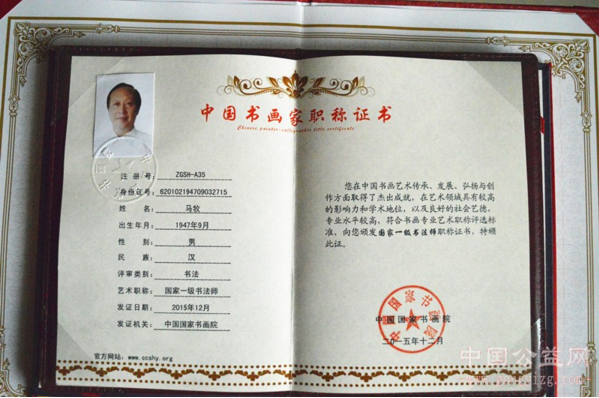 中国书画家职称证书
Chinese painter-calligrapher title certificate
注册号：ZGSH-A35
身份证号：620102194709032715
姓名：马牧
出生年月：1947年9月
性别：男
民族：汉
评审类别：书法
艺术职称：国家一级书法师
发证日期：2015年12月
发证机关：中国国家书画院
官方网站：www.ccshy.org
您在中国书画艺术传承、发展、弘扬与创
作方面取得了杰出成就，在艺术领域具有较高
的影响力和学术地位，以及良好的社会艺德，
专业水平较高，符合书画专业艺术职称评选标
准，向您颁发国家一级书法师职称证书，特颁
此证。
中国国家书画院
二〇一五年十二月
中国国家书画院
中国公益网